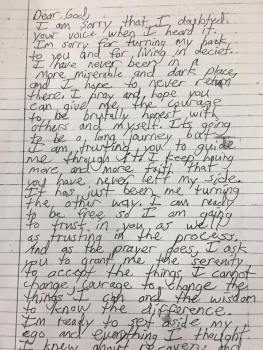 Dear God,
I am sorry that I doubted
your voice when I heard it.
I'm sorry for turning my back
to you and for living in deciet.
I have never been in a
more miserable and dark place,
and I hope to never return
there. I pray and hope you
can give me the courage
to be brutally honest with
others and myself. Its going
to be a long journey but
I am trusting you to guide
me through it. I keep having
more and more faith that
you have never left my side.
It has just been me turning
the other way. I am ready
to be free so I am going
to trust in you as well
as trusting in the process.
And as the prayer does, I ask
you to grant me the serenity
to accept the things I cannot
change, courage to change the
things I can and the wisdom
to know the difference.
I'm ready to set aside my
ego and everything I thought
I knew about recovery and